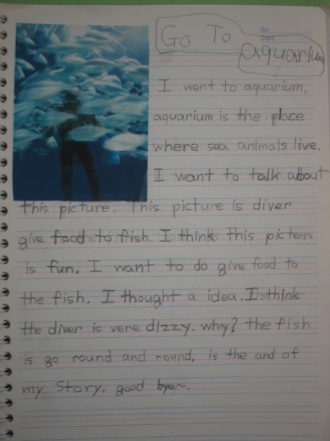 Go To
aquarium
I went to aquarium,
aquarium is the place
where sea animals live.
I want to talk about
this picture. This picture is diver
give food to fish. I think this picten
is fun. I want to do give food to
the fish. I thought a idea. I think
the diver is vere dizzy. why? the fish
is go round and round. is the and of
my story. good bye~.